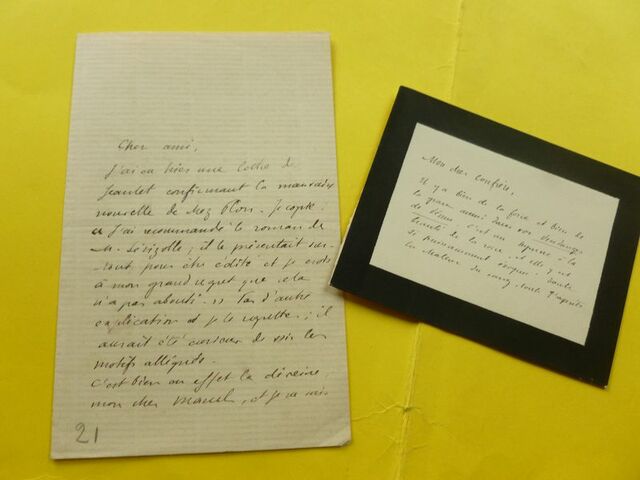 Cher ami,
J'ai eu hier une lettre de
Jeantet confirmant la mauvaise
nouvelle de chez Plon. Je copie :
« J'ai recommandé le roman de
M. Lérizolle ; il le présentait sur-
tout pour être édité et je crois
à mon grand regret que cela
n'a pas abouti. » Pas d'autre
explication et je le regrette ; il
aurait été curieux de voir les
motifs allégués.
C'est bien en effet la déveine,
mon cher Marcel, et je ne vois
21
Mon cher Confrère,
Il y a bien de la force et bien de
la grace aussi dans vos Vendanges
de Vénus c'est un hymne à la
beauté de la
si puissamment